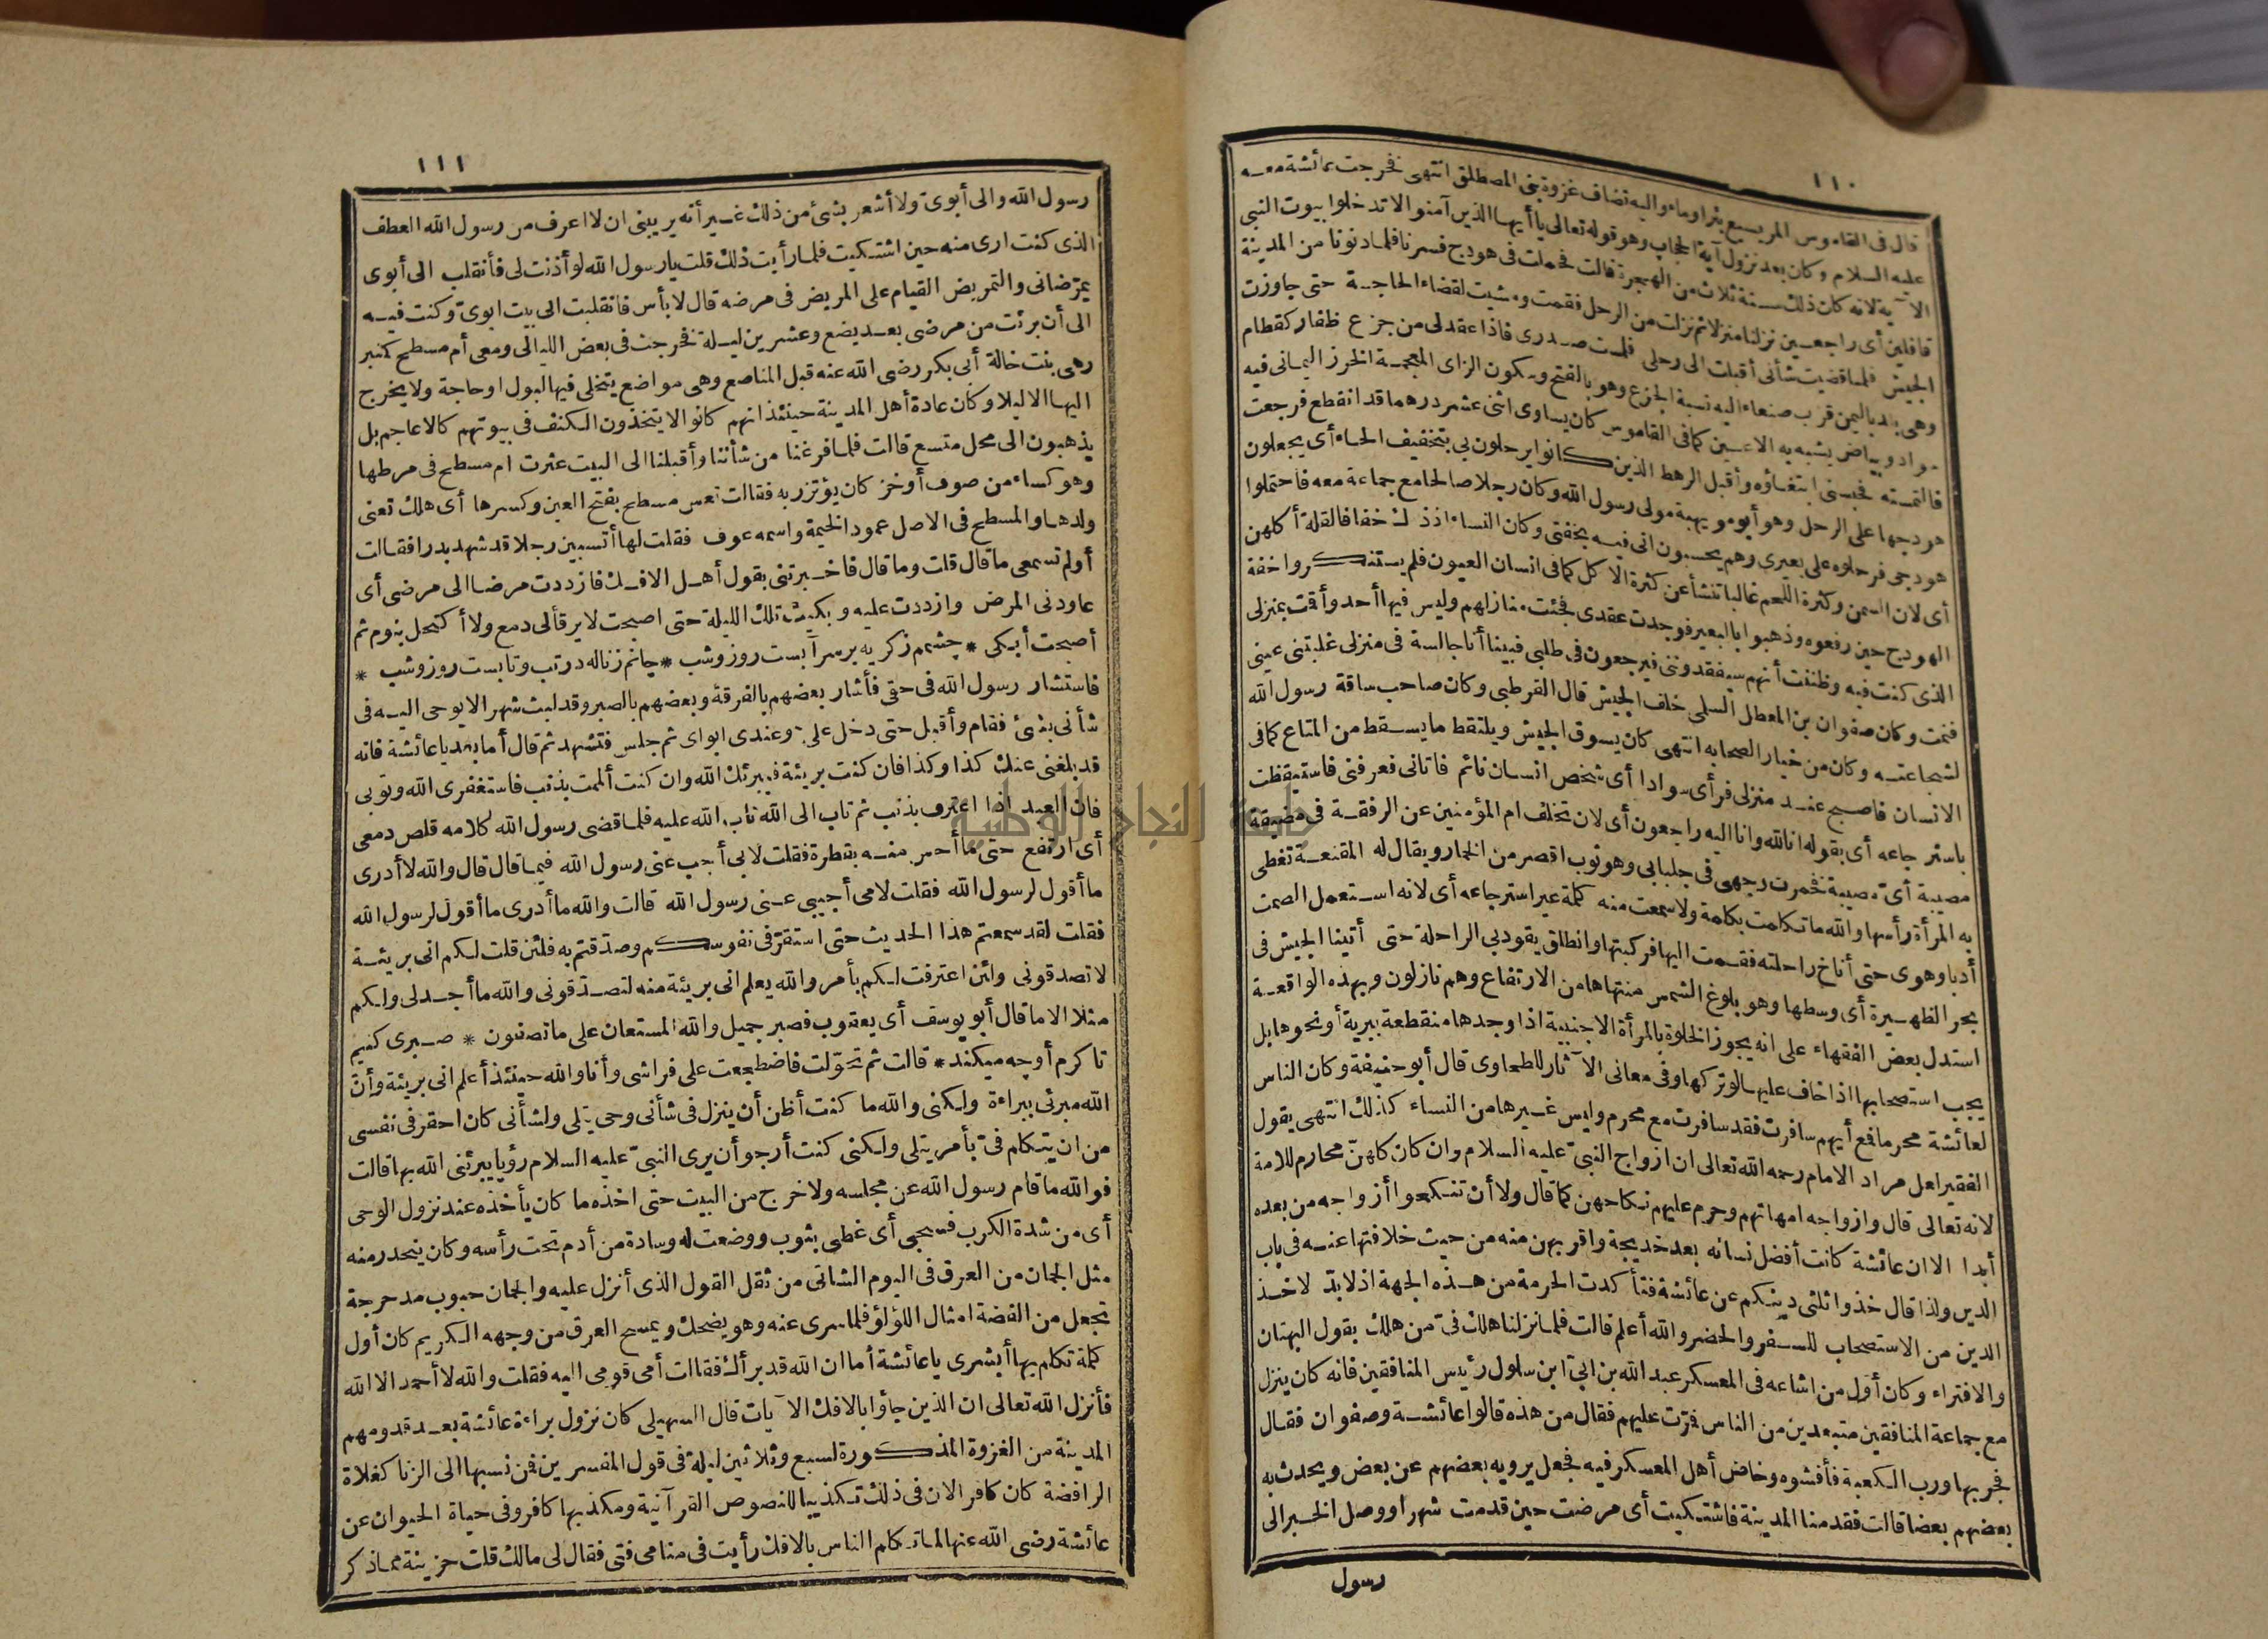 ١١٠
قال فى القاموس المريسيع بئر اوماء واليه تضاف غزوة بنى المصطلق انتهى فخرجت عائشة معه
عليه السلام وكان بعد نزول آية الحجاب وهو قوله تعالى يا أيها الذين آمنوا لا تدخلوا بيوت النبى
الآية لانه كان ذلك سنة ثلاث من الهجرة قالت فحملت فى هودج فسرنا فلما دنونا من المدينة
قافلين أى راجعين نزلنا منزلا ثم نزلت من الرحل فقمت ومشيت لقضاء الحاجة حتى جاوزت
الجيش فلما قضيت شأنى أقبلت الى رحلى فلمست صدرى فاذا عقد لى من جزع ظفار كقطام
وهى بلد باليمن قرب صنعاء اليه نسبة الجزع وهو بالفتح وسكون الزاى المعجمة الخرز اليمانى فيه
سواد وبياض يشبه به الاعين كما فى القاموس كان يساوى اثنى عشر درهما قد انقطع فرجعت
فالتمسته فحبسنى ابتغاؤه وأقبل الرهط الذين كانوا يرحلون بى بتخفيف الحاء أى يجعلون
هودجها على الرحل وهو أبو مويهبة مولى رسول الله وكان رجلا صالحا مع جماعة معه فاحتملوا
هودجى فرحلوه على بعيرى وهم يحسبون انى فيه بخفتى وكان النساء اذ ذاك خفافا لقلة أكلهن
أى لان السمن وكثرة اللحم غالبا تنشأ عن كثرة الاكل كما فى انسان العيون فلم يستنكروا خفة
الهودج حين رفعوه وذهبوا بالبعير فوجدت عقدى فجئت منازلهم وليس فيها أحد وأقمت بمنزلى
الذى كنت فيه وظننت أنهم سيفقدوننى فيرجعون فى طلبى فبينا أنا جالسة فى منزلى غلبتنى عينى
فنمت وكان صفوان بن المعطل السلمى خلف الجيش قال القرطبى وكان صاحب ساقة رسول الله
لشجاعته وكان من خيار الصحابه انتهى كان يسوق الجيش ويلتقط ما يسقط من المتاع كما فى
الانسان فاصبح عند منزلى فرأى سوادا أى شخص انسان نائم فاتانى فعرفنى فاستيقظت
باسترجاعه أى بقوله انا لله وانا اليه راجعون أى لان تخلف ام المؤمنين عن الرفقة فى مضيقة
مصيبة أىّ مصيبة فخمرت وجهى فى جلبابى وهو ثوب اقصر من الخمار ويقال له المقنعة تغطى
به المرأة رأسها والله ما تكلمت بكلمة ولا سمعت منه كلمة غير استرجاعه أى لانه استعمل الصمت
أدبا وهوى حتى أناخ راحلته فقمت اليها فركبتها وانطلق يقود بى الراحلة حتى أتينا الجيش فى
نحر الظهيرة أى وسطها وهو بلوغ الشمس منتهاها من الارتفاع وهم نازلون وبهذه الواقعة
استدل بعض الفقهاء على انه يجوز الخلوة بالمرأة الاجنبية اذا وجدها منقطعة ببرية أو نحوها بل
يجب استصحابها اذا خاف عليها لو تركها وفى معانى الآثار للطحاوى قال أبو حنيفة وكان الناس
لعائشة محرما فمع أيهم سافرت فقد سافرت مع محرم وليس غيرها من النساء كذلك انتهى يقول
الفقير لعل مراد الامام رحمه الله تعالى ان ازواج النبىّ عليه السلام وان كان كلهنّ محارم للامة
لانه تعالى قال وازواجه امهاتهم وحرم عليهم نكاحهن كما قال ولا أن تنكحوا أزواجه من بعده
أبدا الا ان عائشة كانت أفضل نسائه بعد خديجة واقربهن منه من حيث خلافتها عنه فى باب
الدين ولذا قال خذوا ثلثى دينكم عن عائشة فتأكدت الحرمة من هذه الجهة اذ لا بدّ لاخذ
الدين من الاستصحاب للسفر والحضر والله أعلم قالت فلما نزلنا هلك فىّ من هلك بقول البهتان
والافتراء وكان أوّل من اشاعه فى المعسكر عبد الله بن ابىّ ابن سلول رئيس المنافقين فانه كان ينزل
مع جماعة المنافقين متبعدين من الناس فمرّت عليهم فقال من هذه قالوا عائشة وصفوان فقال
فجر بها ورب الكعبة فأفشوه وخاض أهل المعسكر فيه فجعل يرويه بعضهم عن بعض ويحدث به
بعضهم بعضا قالت فقدمنا المدينة فاشتكيت أى مرضت حين قدمت شهرا ووصل الخبر الى
رسول
١١١
رسول الله والى أبوىّ ولا أشعر بشئ من ذلك غير أنه يريبنى ان لا اعرف من رسول الله العطف
الذى كنت ارى منه حين اشتكيت فلما رأيت ذلك قلت يا رسول الله لو أذنت لى فأنقلب الى أبوى
يمرّضانى والتمريض القيام على المريض فى مرضه قال لا بأس فانقلبت الى بيت ابوىّ وكنت فيه
الى أن برئت من مرضى بعد بضع وعشرين ليلة فخرجت فى بعض الليالى ومعى أم مسطح كمنبر
وهى بنت خالة أبى بكر رضى الله عنه قبل المناصع وهى مواضع يتخلى فيها لبول او حاجة ولا يخرج
اليها الا ليلا وكان عادة أهل المدينة حينئذ انهم كانوا لا يتخذون الكنف فى بيوتهم كالاعاجم بل
يذهبون الى محل متسع قالت فلما فرغنا من شأننا وأقبلنا الى البيت عثرت ام مسطح فى مرطها
وهو كساء من صوف أو خز كان يؤتزر به فقالت تعس مسطح بفتح العين وكسرها أى هلك تعنى
ولدها والمسطح فى الاصل عمود الخيمة واسمه عوف فقلت لها أتسبين رجلا قد شهد بدرا فقالت
أولم تسمعى ما قال قلت وما قال فاخبرتنى بقول أهل الافك فازددت مرضا الى مرضى أى
عاودنى المرض وازددت عليه وبكيت تلك الليلة حتى اصبحت لا يرقأ لى دمع ولا أكتحل بنوم ثم
أصبحت أبكى * چشمم زكريه بر سر آبست روز وشب * جانم زناله در تب وتابست روز وشب *
فاستشار رسول الله فى حقى فأشار بعضهم بالفرقة وبعضهم بالصبر وقد لبث شهرا لا يوحى اليه فى
شأنى بشئ فقام وأقبل حتى دخل علىّ وعندى ابواى ثم جلس فتشهد ثم قال أما بعد يا عائشة فانه
قد بلغنى عنك كذا وكذا فان كنت بريئة فيبرئك الله وان كنت ألممت بذنب فاستغفرى الله وتوبى
فان العبد اذا اعترف بذنب ثم تاب الى الله تاب الله عليه فلما قضى رسول الله كلامه قلص دمعى
أى ارتفع حتى ما أحس منه بقطرة فقلت لابى أجب عنى رسول الله فيما قال قال والله لا أدرى
ما أقول لرسول الله فقلت لامى أجيبى عنى رسول الله قالت والله ما أدرى ما أقول لرسول الله
فقلت لقد سمعتم هذا الحديث حتى استقرّ فى نفوسكم وصدّقتم به فلئن قلت لكم انى بريئة
لا تصدقونى ولئن اعترفت لكم بأمر والله يعلم انى بريئة منه لتصدّقونى والله ما أجد لى ولكم
مثلا الا ما قال أبو يوسف أى يعقوب فصبر جميل والله المستعان على ما تصفون * صبرى كنيم
تا كرم او چه ميكند * قالت ثم تحوّلت فاضطجعت على فراشى وأنا والله حينئذ أعلم انى بريئة وأنّ
الله مبرئى ببراءة ولكنى والله ما كنت أظن أن ينزل فى شأنى وحى يتلى ولشأنى كان احقر فى نفسى
من ان يتكلم فىّ بأمر يتلى ولكنى كنت أرجو أن يرى النبىّ عليه السلام رؤيا يبرئنى الله بها قالت
فوالله ما قام رسول الله عن مجلسه ولا خرج من البيت حتى اخذه ما كان يأخذه عند نزول الوحى
أى من شدة الكرب فسجى أى غطى بثوب ووضعت له وسادة من أدم تحت رأسه وكان ينحدر منه
مثل الجمان من العرق فى اليوم الشاتى من ثقل القول الذى أنزل عليه والجمان حبوب مدحرجة
تجعل من الفضة امثال اللؤلؤ فلما سرى عنه وهو يضحك ويمسح العرق من وجهه الكريم كان أول
كلمة تكلم بها أبشرى يا عائشة أما ان الله قد برأك فقالت أمى قومى اليه فقلت والله لا أحمد الا الله
فأنزل الله تعالى ان الذين جاؤا بالافك الآيات قال السهيلى كان نزول براءة عائشة بعد قدومهم
المدينة من الغزوة المذكورة لسبع وثلاثين ليلة فى قول المفسرين فمن نسبها الى الزنا كغلاة
الرافضة كان كافرا لان فى ذلك تكذيبا للنصوص القرآنية ومكذبها كافر وفى حياة الحيوان عن
عائشة رضى الله عنها لما تكلم الناس بالافك رأيت فى منامى فتى فقال لى مالك قلت حزينة مما ذكر
جامعة النجاح الوطنية